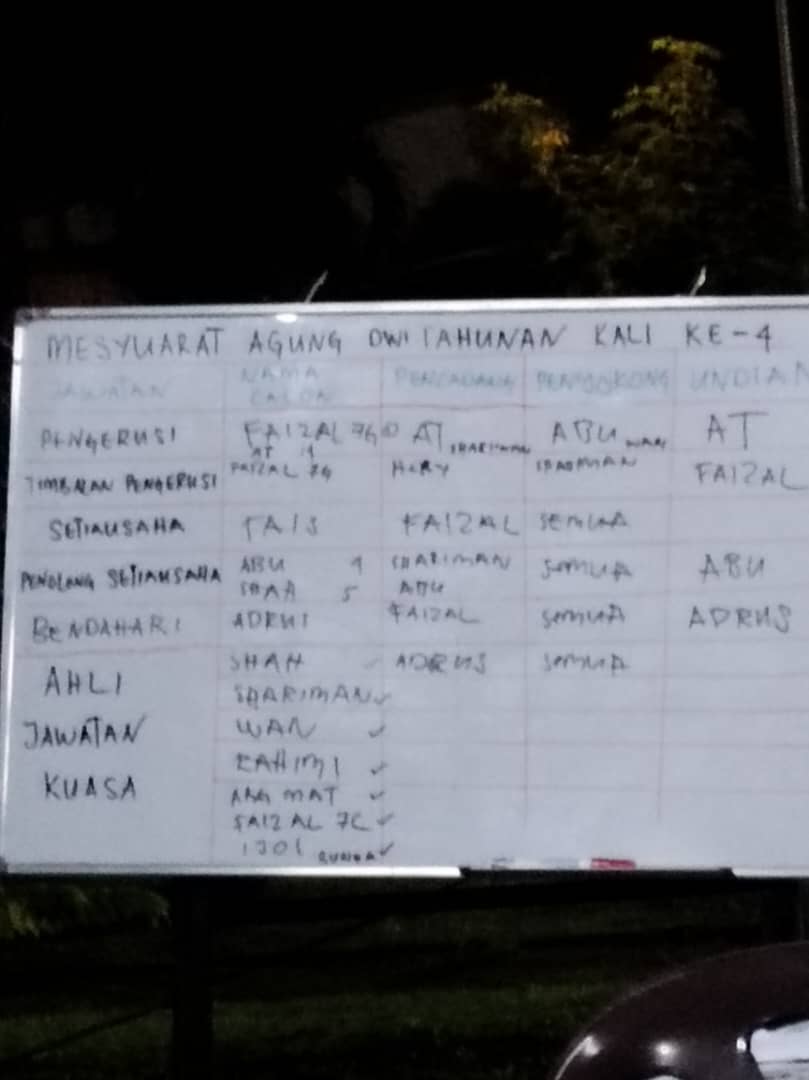 MESYUARAT AGUNG DWITAHUNAN KALI KE-4
JAWATAN NAMA CALON PENCADANG PENYOKONG UNDIAN
PENGERUSI FAIZAL 7G AT SHARIMAN ABU WAN AT
AT 9
TIMBALAN PENGERUSI FAIZAL 7G HERY SHARIMAN FAIZAL
SETIAUSAHA FAIZAL SEMUA
PENOLONG SETIAUSAHA ABU 9 SHARIMAN SEMUA ABU
SHAH 5 ABU
BENDAHARI ADRUS FAIZAL SEMUA ADRUS
AHLI SHAH ✓ ADRUS SEMUA
SHARIMAN ✓
JAWATAN WAN ✓
KUASA RAHIMI ✓
MAT ✓
FAIZAL 7C ✓
✓